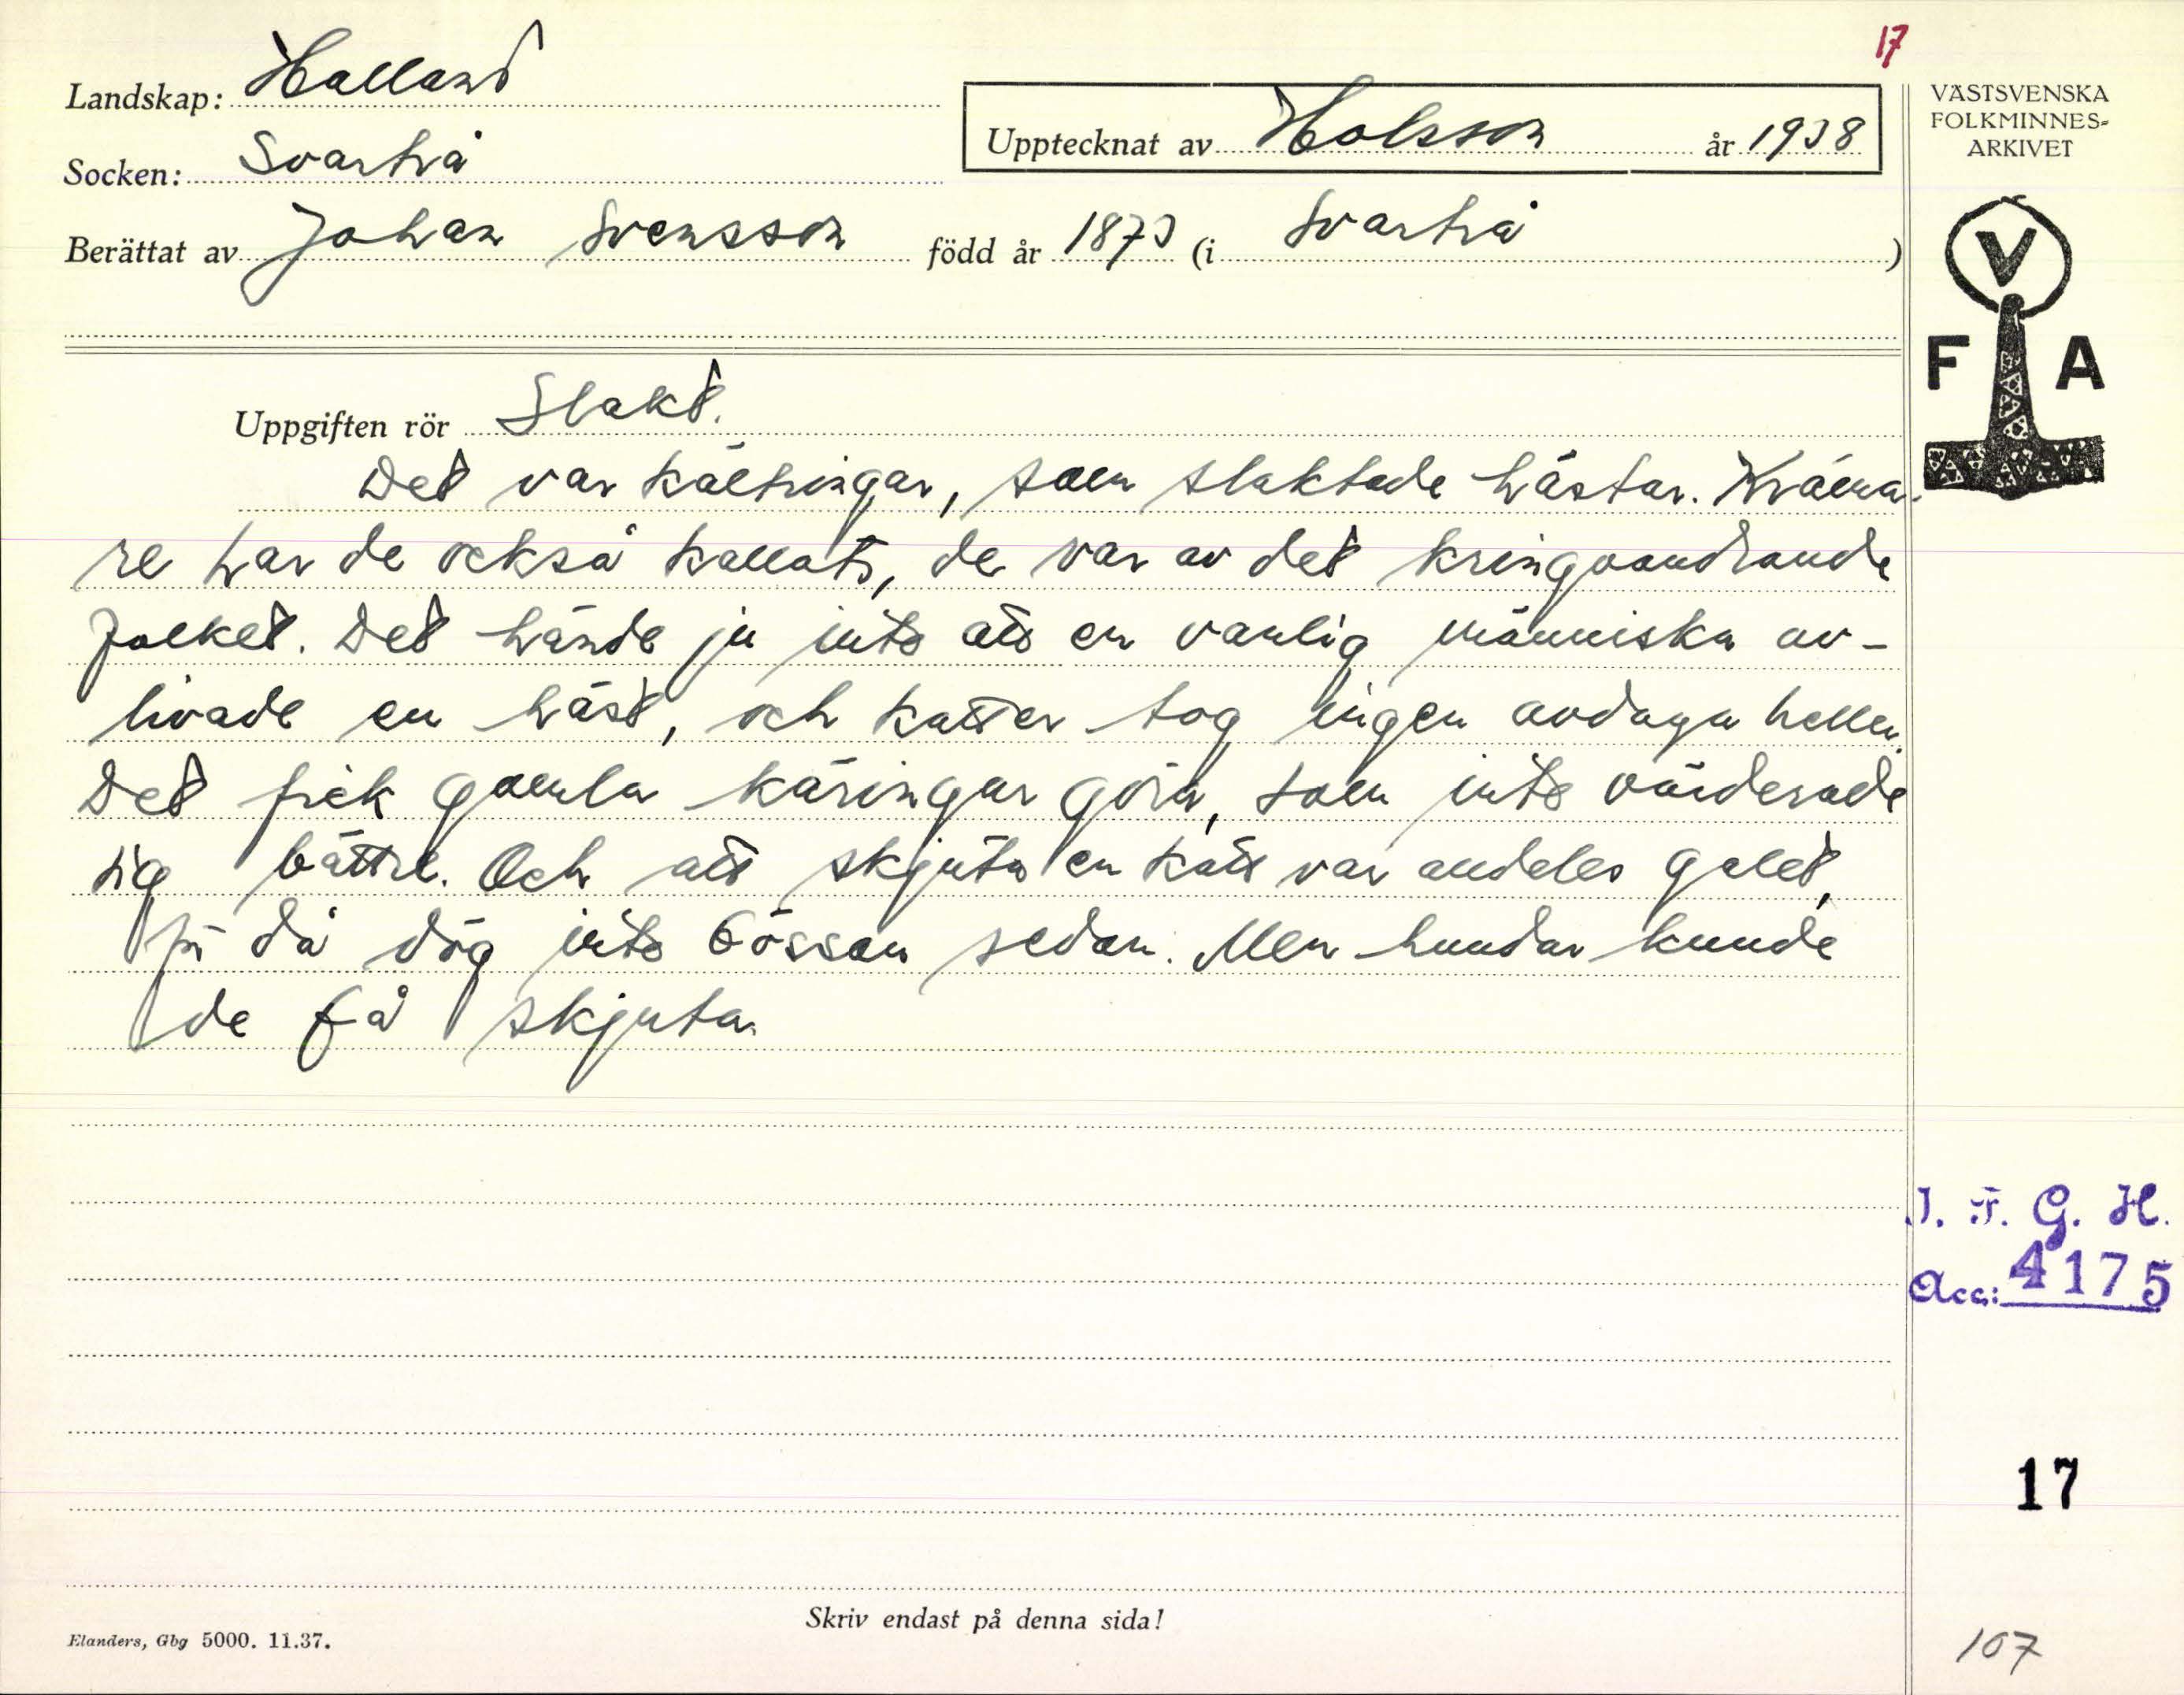 17
Landskap: Halland
Upptecknat av Holsson år 1938
VÄSTSVENSKA
FOLKMINNES-
ARKIVET
Socken: Svartrå
Berättat av Johan Svensson född år 1873 (i Svartrå)
V
F A
Uppgiften rör Slakt.
Det var kältringar, som slaktade hästar. Kräma-
re har de också kallats, de var av det kringvandrande
folket. Det hände ju inte att en vanlig människa av-
livade en häst, och katter tog ingen avdaga heller.
Det fick gamla käringar göra, som inte värderade
sig bättre. Och att skjuta en katt var alldeles galet,
för då dög inte bössan sedan. Men hundar kunde
de få skjuta.
I. F. G. H.
Acc: 4175
17
Skriv endast på denna sida!
Elanders, Gbg 5000. 11.37.
107